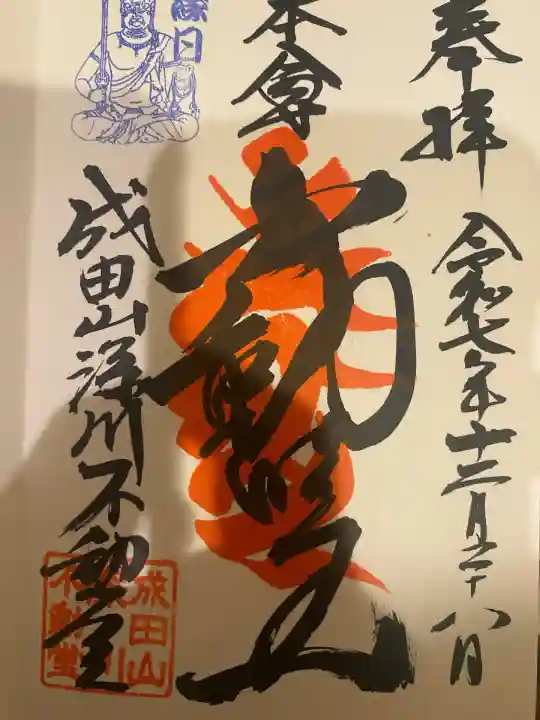 奉拝
令和七年十二月二十八日
本尊
不動明王
縁日
成田山深川不動堂
成田山
深川
不動堂